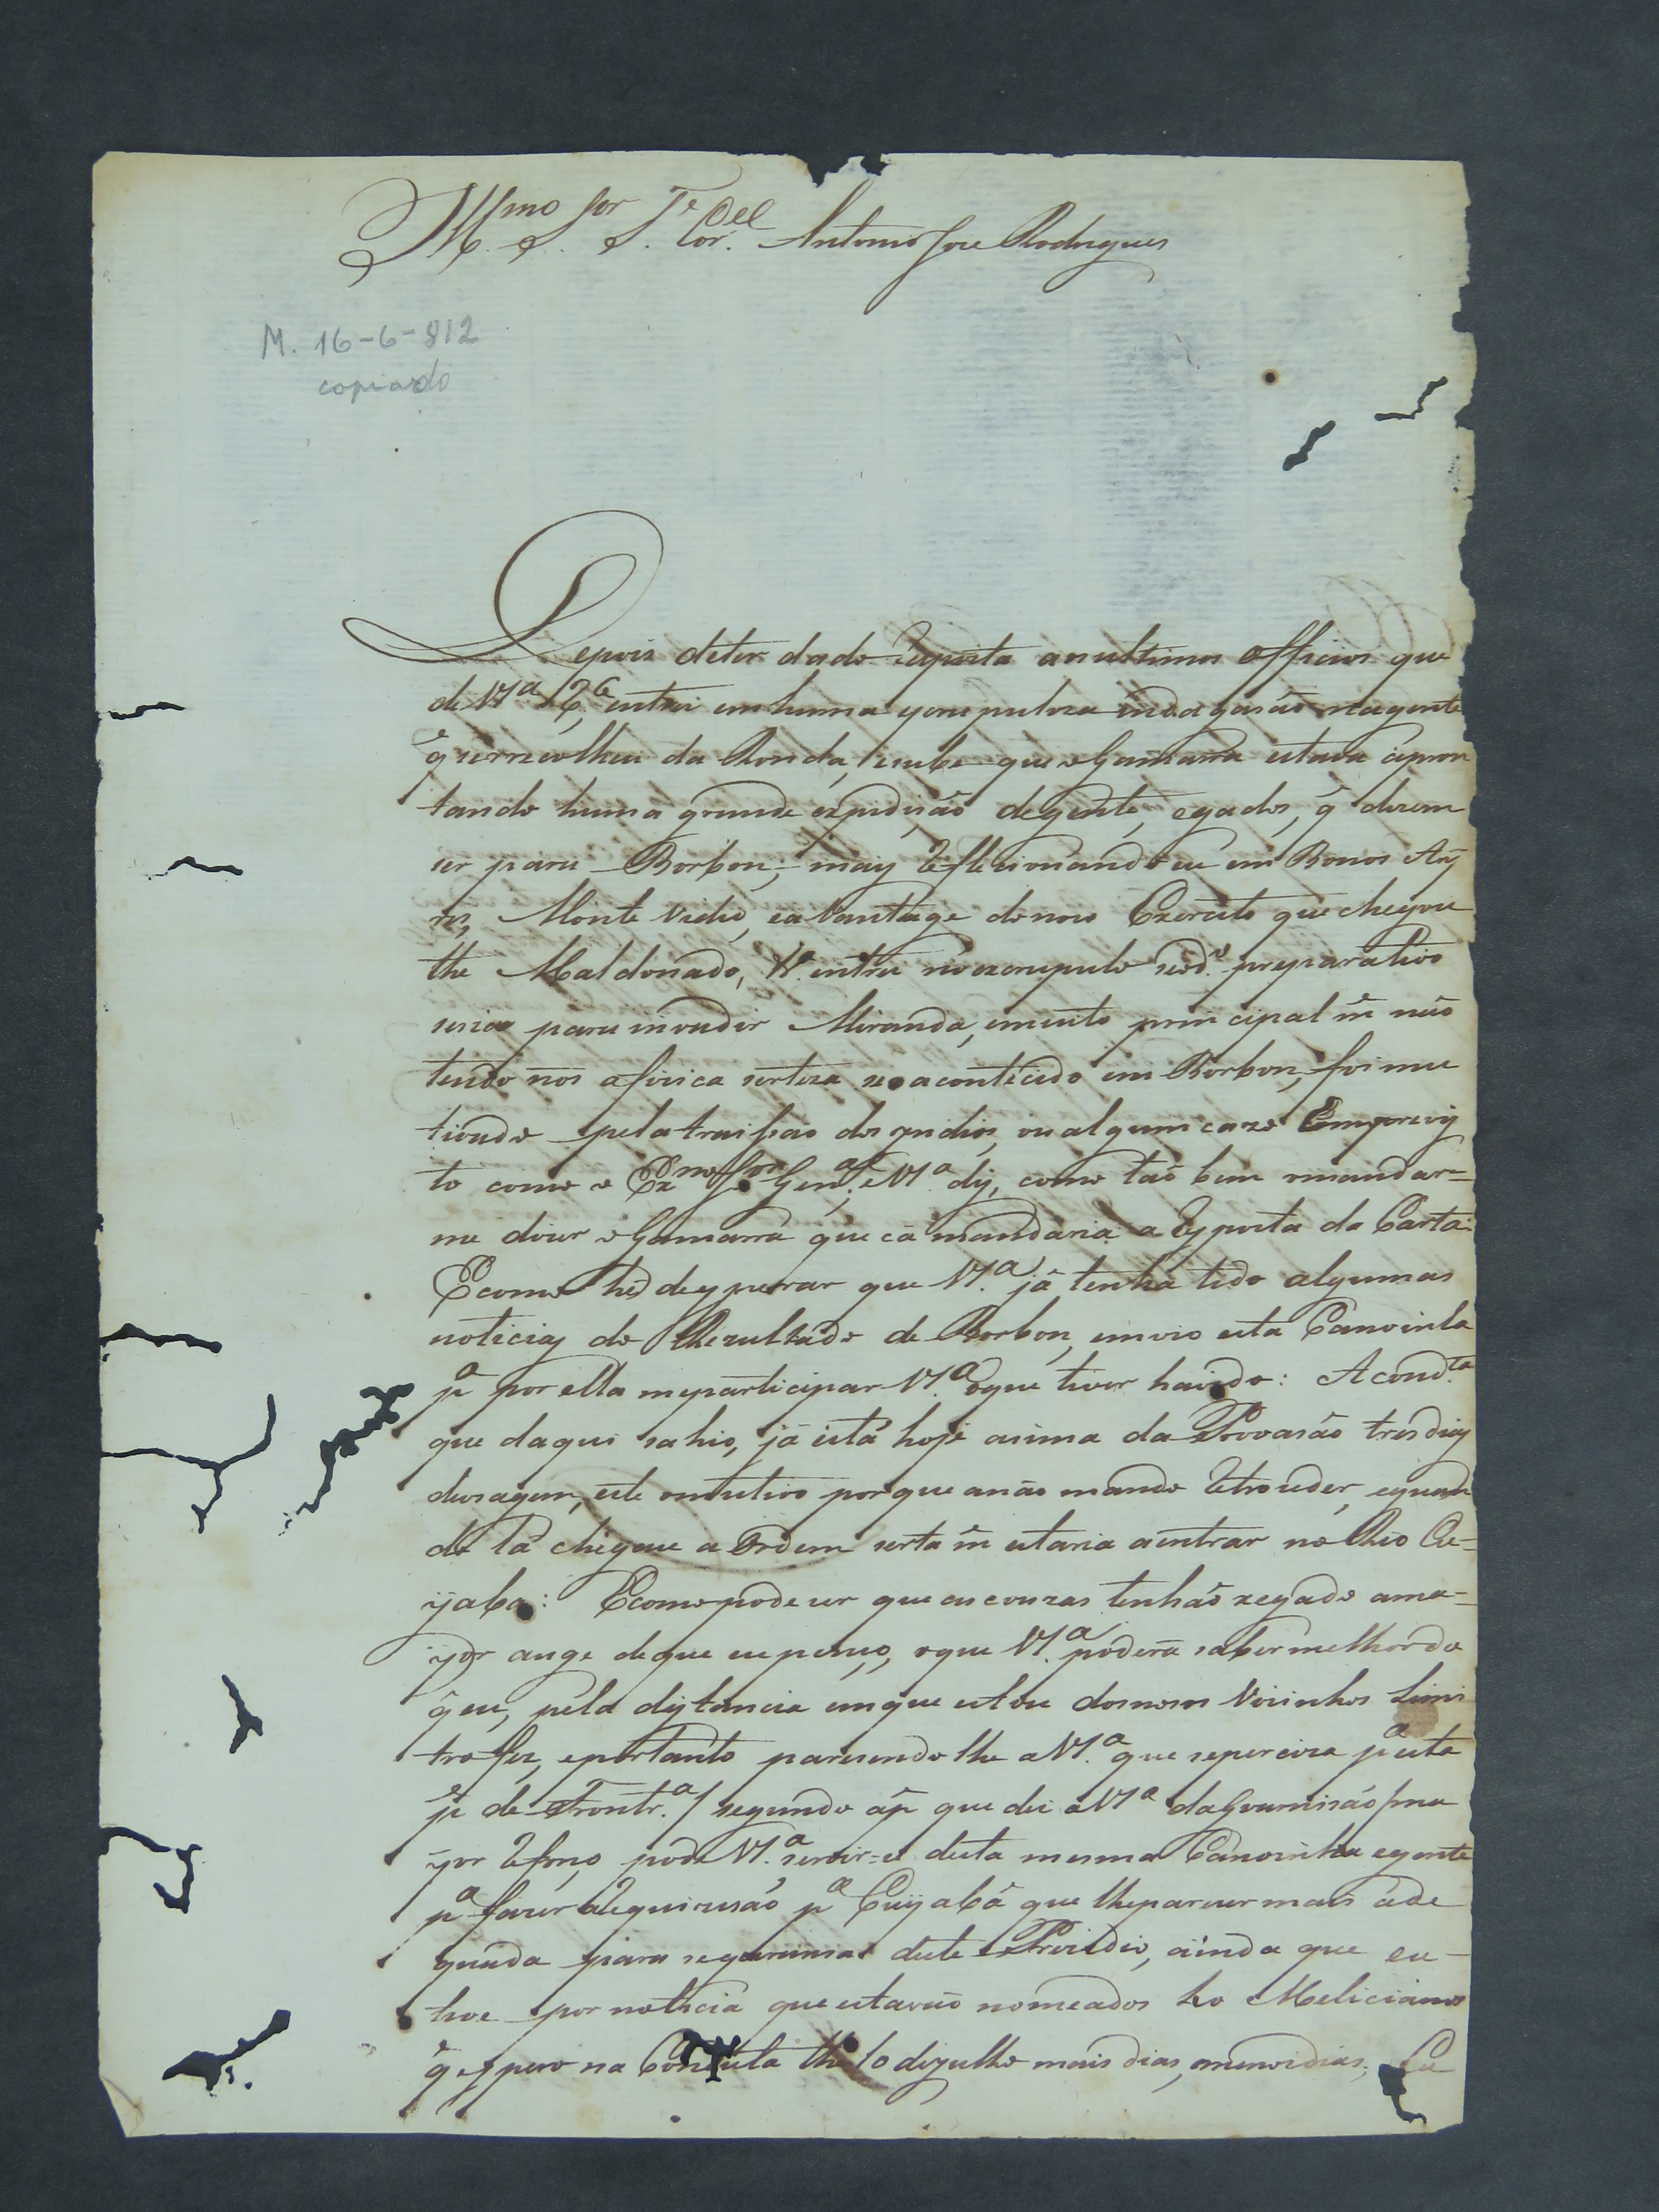 Illmo Sor Te Corel Antonio Joze Rodrigues
M. 16-6-812
copiado
Depois deter dado reposta aos ultimos officios que
de VSa entrei em huma indagasão na gente
q̃ serrecolheu da Ronda, esube que o Gamarra estava apron
tando huma grande expedisão degente, egados, q̃ dizem
ser para Borbon; may Reflecionando eu em Bonos Ay
res, Monte vidio, ea Vantage donoso Exercito que chegou
the Maldonado, entrei no escrupulo seos preparativos
seria para invadir Miranda, principal m̃ não
tendo nos afizica serteza seoacontecido em Borbon, foi mu
tivado pela traisão dos yndios, ou algum cazo Emprevy
to como o Exmo Sor Genal, e VSa diz, como tão bem mandar=
me dizer o Gamarra que cá mandaria a Resposta da Carta:
Ecomo he deyperar que VSa já tenha tido algumas
noticiaz do Rezultado de Borbon, envio esta Canoinha
pa por ella meparticipar VSa oque tiver havido: A condta
que daqui sahio, já está hoje asima da Povoasão tres diaz
deviagem, este omutivo porque anão mando Retroseder, equan
do lá chegue a Ordem serta m̃ estaria aentrar no Rio Cu=
yaba: Ecomo pode ser que as couzas tenhão xegado ama=
yor auge deque eu penso, oque VSa poderá saber melhor do
q̃ eu, pela dystancia emque estou dosnosos Vizinhos Limi
trofes, eportanto paresendo lhe a VSa que sepersiza pa esta
pe de Frontra / segundo ap̃ que dei a VSa da Guarnisão / ma
yor Reforso, pode VSa servir=se desta mesma Canoinha egente
pa fazer Requizisão pa Cuyabá que lheparecer mais ade
quada para seguransa deste Prezidio, ainda que eu
tive por noticia que estavão nomeados Meliciános
q̃ espero na Consulta the 10 deJulho mais dias, omenos dias; Eu